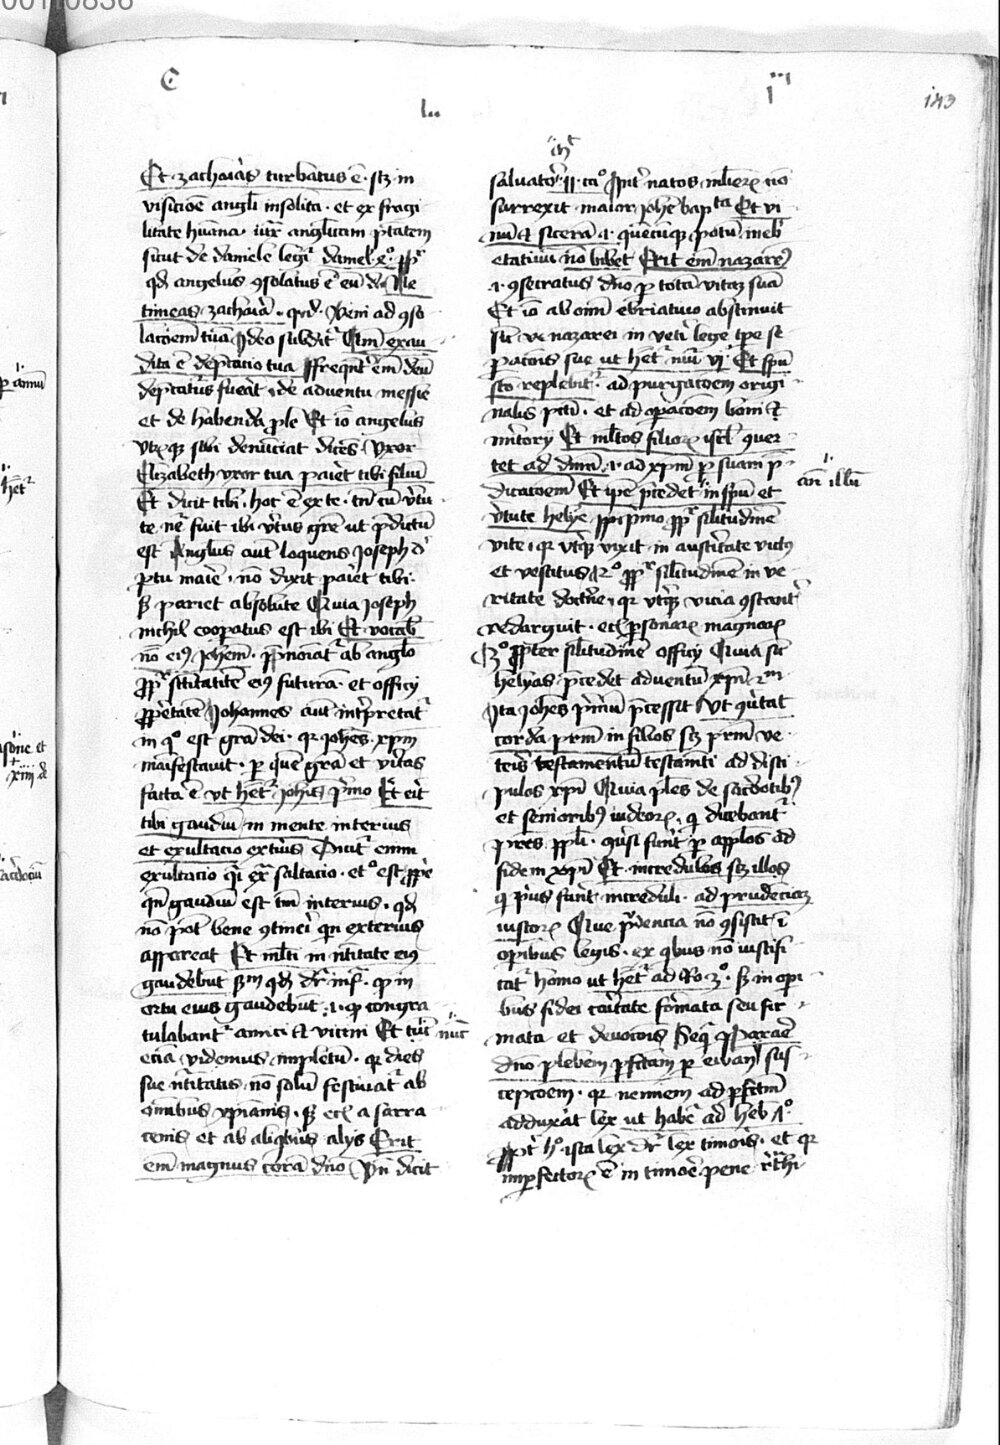 00110836
C
i
L..
143
Et zacharias turbatus ē · sz in
visiōe angli insolita · et ex fragi
litate huāna · iux̄ anglicam ptātem
sicut de daniele legiť daniel x° · ppť
qd angelus ɔsolatus ē eū dⁿ Ne
timeas zacharia · qd veni ad ɔso
lacōem tuā Ideo subdiť Qm̄ exau
dita ē dep̄catio tua ffreqn̄ť em̄ deū
dep̄catus fuerat · de adventu messie
et de habenda ple Et io angelus
utrqȝ sibi denūciat dicēs Uxor
Elizabeth uxor tua pariet tibi filiū
Et dicit tibi · hoc ē ex te · tn̄ cū v̄tu
te · nē fuit ibi v̄tus grē ut p̄dictū
est Anglus aut̄ loquens Joseph d'
ptu marie · nō dixit pariet tibi ·
ß pariet absolute Quia Joseph
nichil coopatus est ibi Et vocab̄
nō eiꝰ Johēm · p̄nōiať ab anglo
ppť sc̄titatē eiꝰ futura · et officij
pp̄etate Johannes aut̄ int̄pretať
in q° est grā dei · qr Johēs xpm
maīfestavit · p quē grā et v̄itas
facta ē ut heť Johis p̄mo Et erit
tibi gaudiū in mente interius
et exultacio ext̄ius Dicit̄ enim
exultacio q̄i ex̄ saltacio · et° est pp̄e
qn̄ gaudiū est tm̄ interius · qd
nō pot̄ bene ɔtineri qn exterius
appareat Et ml̄ti in nt̄ītate eiꝰ
gaudebūt ßm qd dr̄ inf̄ · qȝ in
ortu eius gaudebūt · i · qȝ congra
tulabant̄ amici et vicini Et tūc
nūc
eciā videmus impletū · qr dies
sue nt̄itatis · nō solū festivať ab
omībus xp̄ianis · ß ecī a sarra
cenis et ab aliqbus alijs Erit
em̄ magnus corā dn̄o Vn̄ dicit
int̄
salvator · xi · ca° Int̄ natos mlierꝫ nō
surrexit maior Johē bap^ta Et vi
nū et sicerā · i · quecūqȝ potū ineb
etativū nō bibet Erit em̄ nazareꝰ
· i · ɔsecratus dn̄o p totā vitaȝ suā
Et io ab om̄i ebriativo abstinuit
sic̄ ve nazarei in vet̄i lege tp̄e se
pacōis sue ut heť nūi vj° Et sp̄u
sc̄o replebiť ad purgacōem origi
nalis pcti · et ad opacōem boni et
mitorij Et ml̄tos filiorꝫ isrl̄ quer
tet ad dnm̄ · i · ad xpm̄ p suam p̄
dicacōem Et ipē p̄cedet in sp̄u et
an̄ illū
v̄tute helye pp̄ p̄mo ppť silitudinē
vite · qr utqȝ vixit in aust̄itate victꝰ
et vestitus 2° ppť silitudinē in ve
ritate doctrīe · qr utqȝ vicia ɔstant̄
redarguit · ecī psonarꝫ magnarꝫ
3° ppter silitudinē officij Quia sic̄
helyas p̄cedet adventū xpi 2^m
Ita Johēs p̄mū p̄cessit Ut ɔv̄tat
corda p̄rm in filios sz p̄rm ve
teris testamentū testamti ad disci
pulos xpi Quia ples de sacdotibꝰ
et senioribꝰ iudeorꝫ · q dicebant̄
p̄res ppl̄i · ɔv̄si sūnt p appl̄os ad
fidem xpi Et incredulos sz illos
q p̄us fūnt increduli · ad prudenciaȝ
iustorꝫ Que prudencia nō ɔsistit ī
opibus legis · ex qbus nō iustifi
cať homo ut heť ad Ro 3° · ß in opi
bus fidei caritate formata seu fir
mata et devocōis Seqť Parare
dn̄o plebem pfctam p ewanl̄ sus
cepcōem · qr neminem ad pfctm̄
adduxit lex ut haber̄ ad heb̄ 7°
ppť h° ista lex dr̄ lex timoris · et qr
impfectorꝫ ē in timore pene